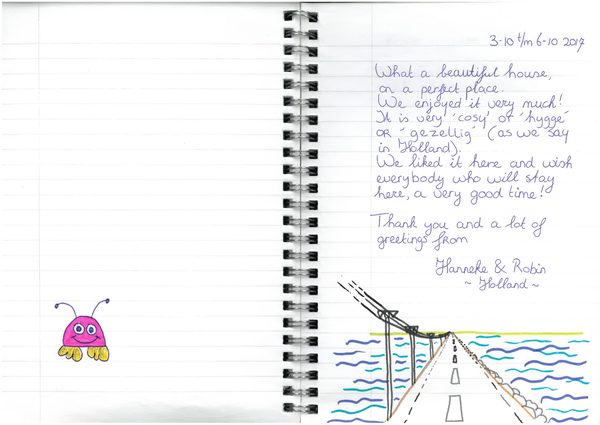 3-10 t/m 6-10 2017
What a beautiful house,
on a perfect place.
We enjoyed it very much!
It is very 'cosy' of 'hygge'
or 'gezellig' (as we say
in Holland).
We liked it here and wish
everybody who will stay
here, a very good time!
Thank you and a lot of
greetings from
Hanneke & Robin
~ Holland ~